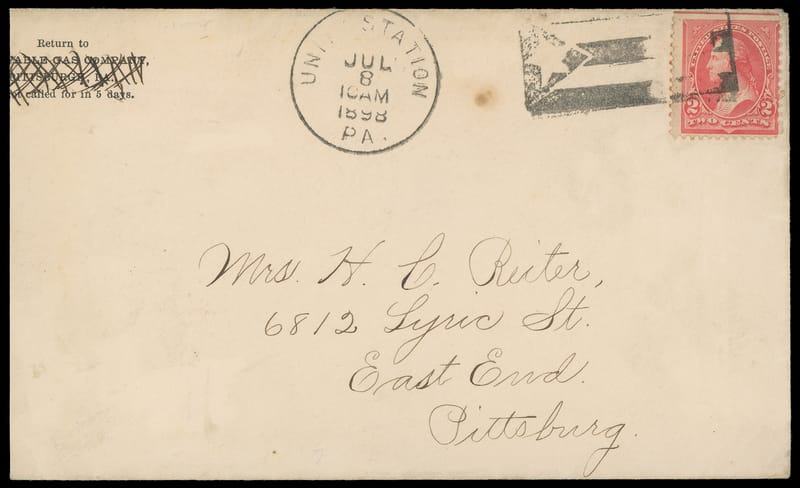 Return to
GAS COMPANY,
PITTSBURGH, PA.
not called for in 5 days.
UNION STATION
JUL
8
10AM
1898
PA.
UNITED STATES POSTAGE
2 2
TWO CENTS
Mrs. H. C. Reiter,
6812 Lyric St.
East End.
Pittsburg.